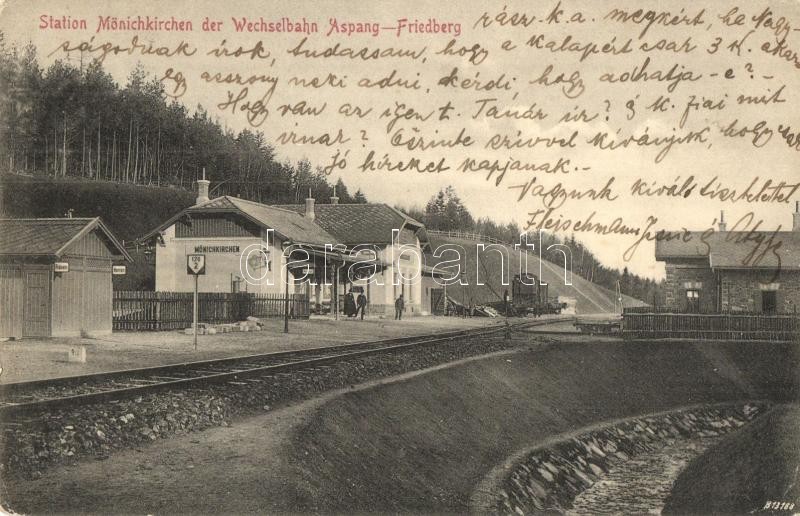 Station Mönichkirchen der Wechselbahn Aspang—Friedberg
rász k.a. megkért, ha Nagy-
ságodnak írok, tudassam, hogy a kalapért csak 3 K. akar
egy asszony neki adni, kérdi, hogy adhatja-e?-
Hogy van az igen t. Tanár úr? s k. fiai mit
írnak? Őszinte szívvel kívánjuk, hogy
Jó híreket kapjanak.-
Vagyunk kiváló tisztelettel
Fleischmann
MÖNICHKIRCHEN
Frauen
Männer
darabanth